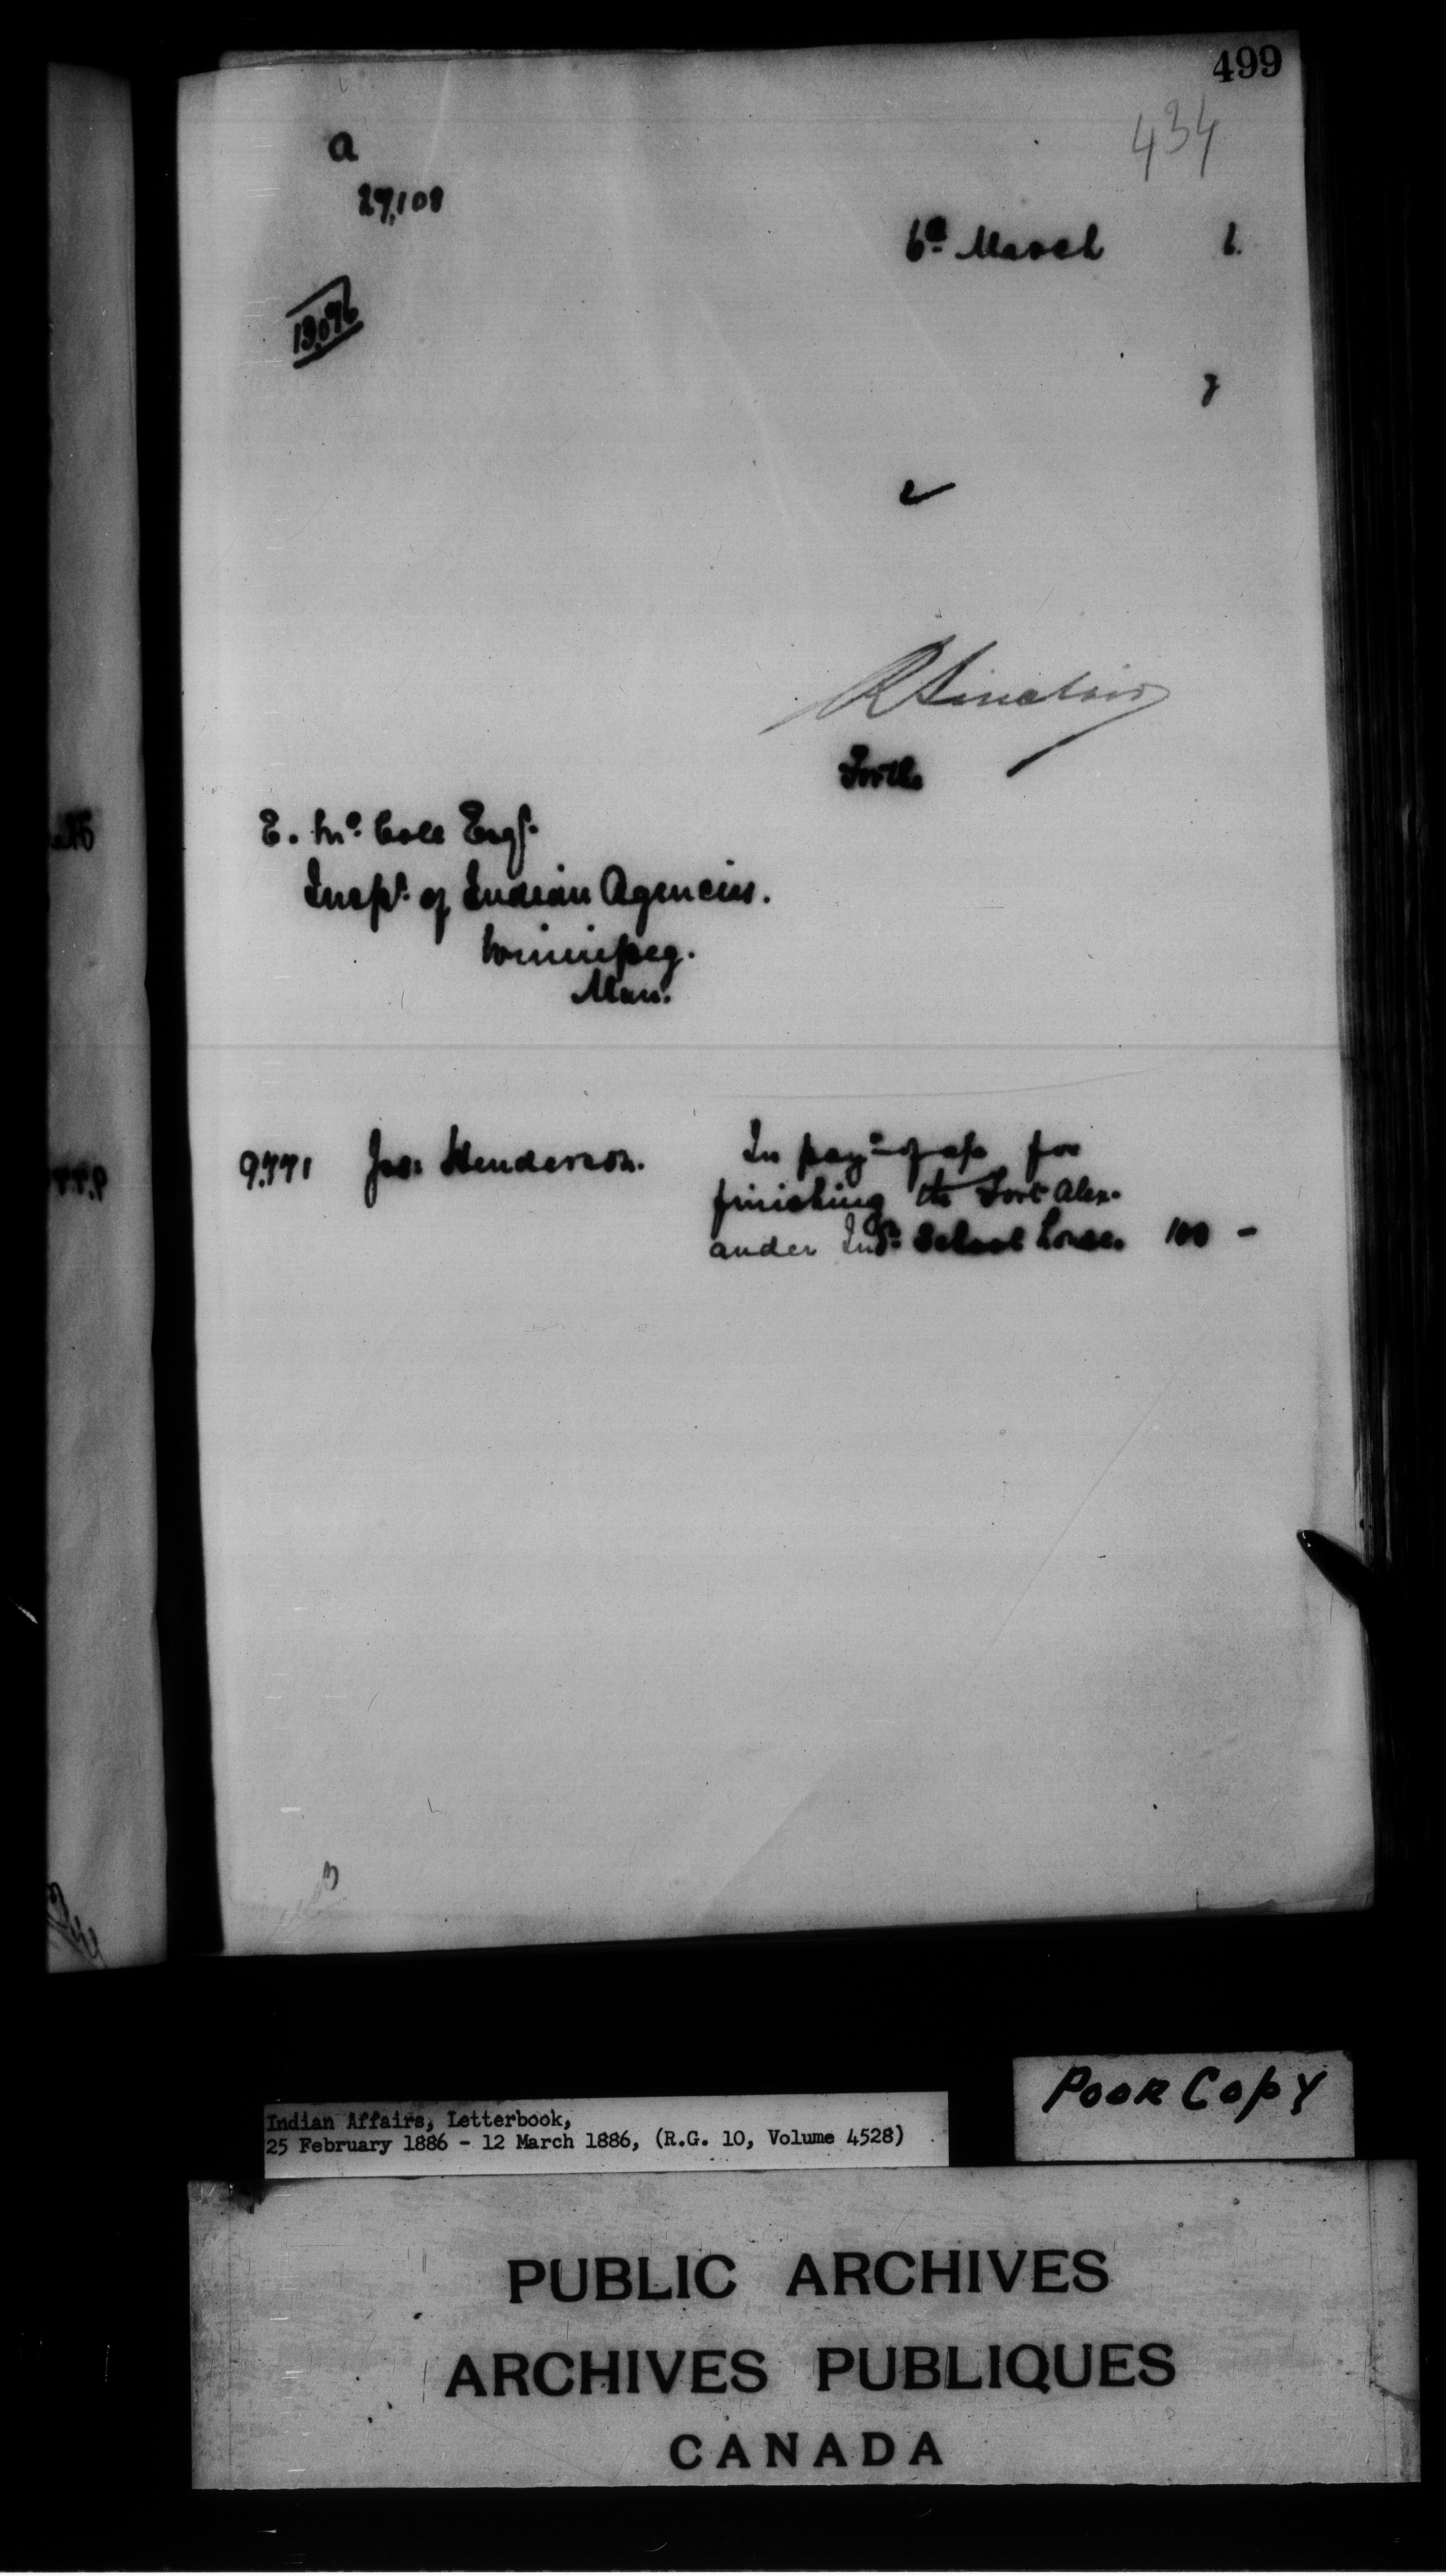 499
434
a
27,108
6th March 6.
13,076
R Sinclair
For the
E. McColl Esqr.
Inspr. of Indian Agencies.
Winnipeg.
Man.
9,771 Jas: Henderson. In payt of a/c for
finishing the Fort Alex-
ander Indn. School house. 100 -
Indian Affairs, Letterbook,
25 February 1886 - 12 March 1886, (R.G. 10, Volume 4528)
POOR COPY
PUBLIC ARCHIVES
ARCHIVES PUBLIQUES
CANADA